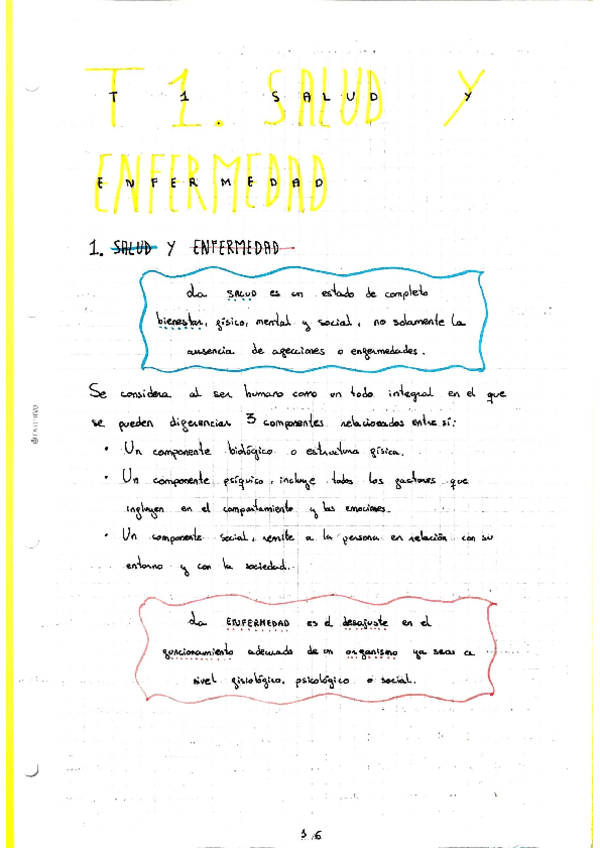 T 1. SALUD Y
T 1 SALUD Y
ENFERMEDAD
ENFERMEDAD
1. SALUD Y ENFERMEDAD
La SALUD es un estado de completo
bienestar, físico, mental y social, no solamente la
ausencia de afecciones o enfermedades.
Se considera al ser humano como un todo integral en el que
se pueden diferenciar 3 componentes relacionados entre sí:
• Un componente biológico o estructura física.
• Un componente psíquico, incluye todos los factores que
influyen en el comportamiento y las emociones.
• Un componente social, remite a la persona en relación con su
entorno y con la sociedad.
La ENFERMEDAD es el desajuste en el
funcionamiento adecuado de un organismo ya seas a
nivel fisiológico, psicológico o social.